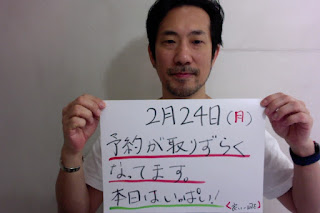 2月24日(月)
予約が取りずらく
なってます。
本日はいっぱい!